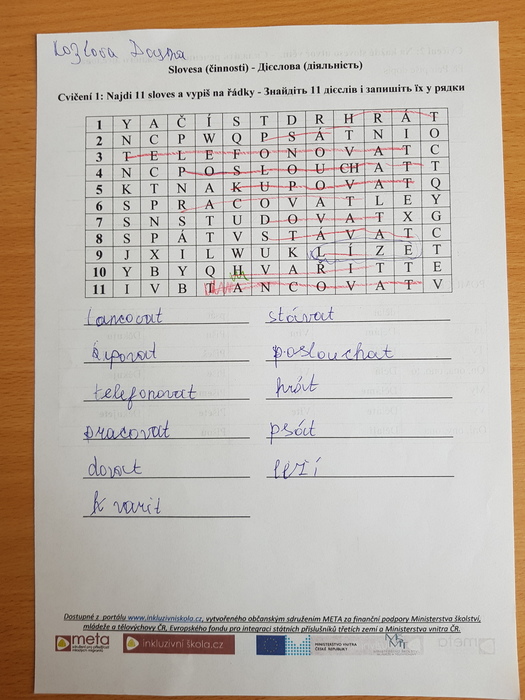 Kozlova
Slovesa (činnosti) - Дієслова (діяльність)
Cvičení 1: Najdi 11 sloves a vypiš na řádky - Знайдіть 11 дієслів і запишіть їх у рядки
1 Y A Č Í S T D R H R Á T
2 N C P W Q P S Á T N I O
3 T E L E F O N O V A T C
4 N C P O S L O U CH A T T
5 K T N A K U P O V A T Q
6 S P R A C O V A T L E Y
7 S N S T U D O V A T X G
8 S P Á T V S T Á V A T C
9 J X I L W U K L Í Z E T
10 Y B Y Q H V A Ř I T T E
11 I V B T A N C O V A T V
tancovat stávat
kupovat poslouchat
telefonovat hrát
pracovat psát
dovat
k varit
Dostupné z portálu www.inkluzivniskola.cz, vytvořeného občanským sdružením META za finanční podpory Ministerstva školství,
mládeže a tělovýchovy ČR, Evropského fondu pro integraci státních příslušníků třetích zemí a Ministerstva vnitra ČR.
meta inkluzivní škola.cz MINISTERSTVO VNITRA
ČESKÉ REPUBLIKY